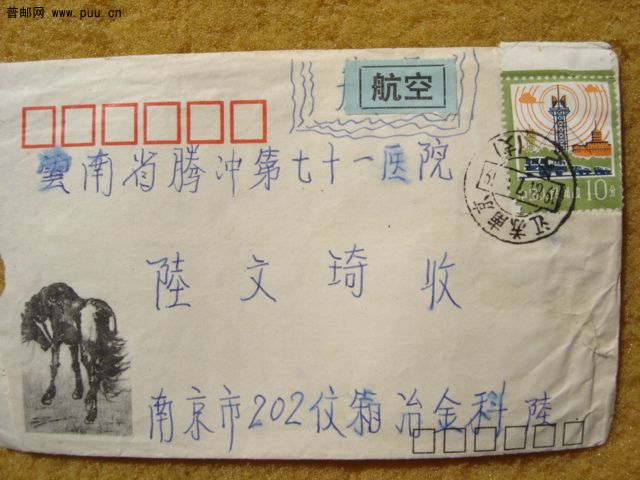 普邮网 www.puu.cn
航空
10分
江苏南京
雲南省腾冲第七十一医院
陸文琦收
南京市202仗箱冶金科 陸